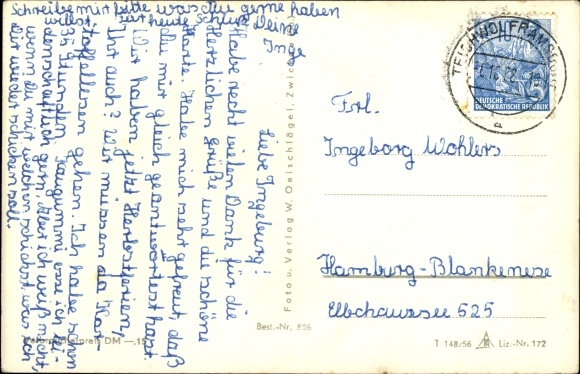 Liebe Ingeburg!
Habe recht vielen Dank für die
herzlichen Grüße und die schöne
Karte. Habe mich sehr gefreut, daß
du mir gleich geantwortest hast.
Wir haben jetzt Herbstferien,
Ihr auch? Wir müssen da Kar-
toffellesen gehen. Ich habe schon
35 Stunden. Kaugummi esse ich lei-
denschaftlich gern. Aber ich weiß nicht,
wenn du mir welchen schickst was ich
dir wieder schicken soll.
Schreibe mir bitte was du gerne haben
willst. Für heute Schluß Deine
Inge
Foto u. Verlag W. Oelschlägel, Zwickau
Best.-Nr. 836
DM —,15
TEICHWOLFRAMSDORF
a
15
DEUTSCHE
DEMOKRATISCHE REPUBLIK
Frl.
Ingeborg Wohlers
Hamburg-Blankenese
Elbchaussee 525
T 148/56 Liz.-Nr. 172